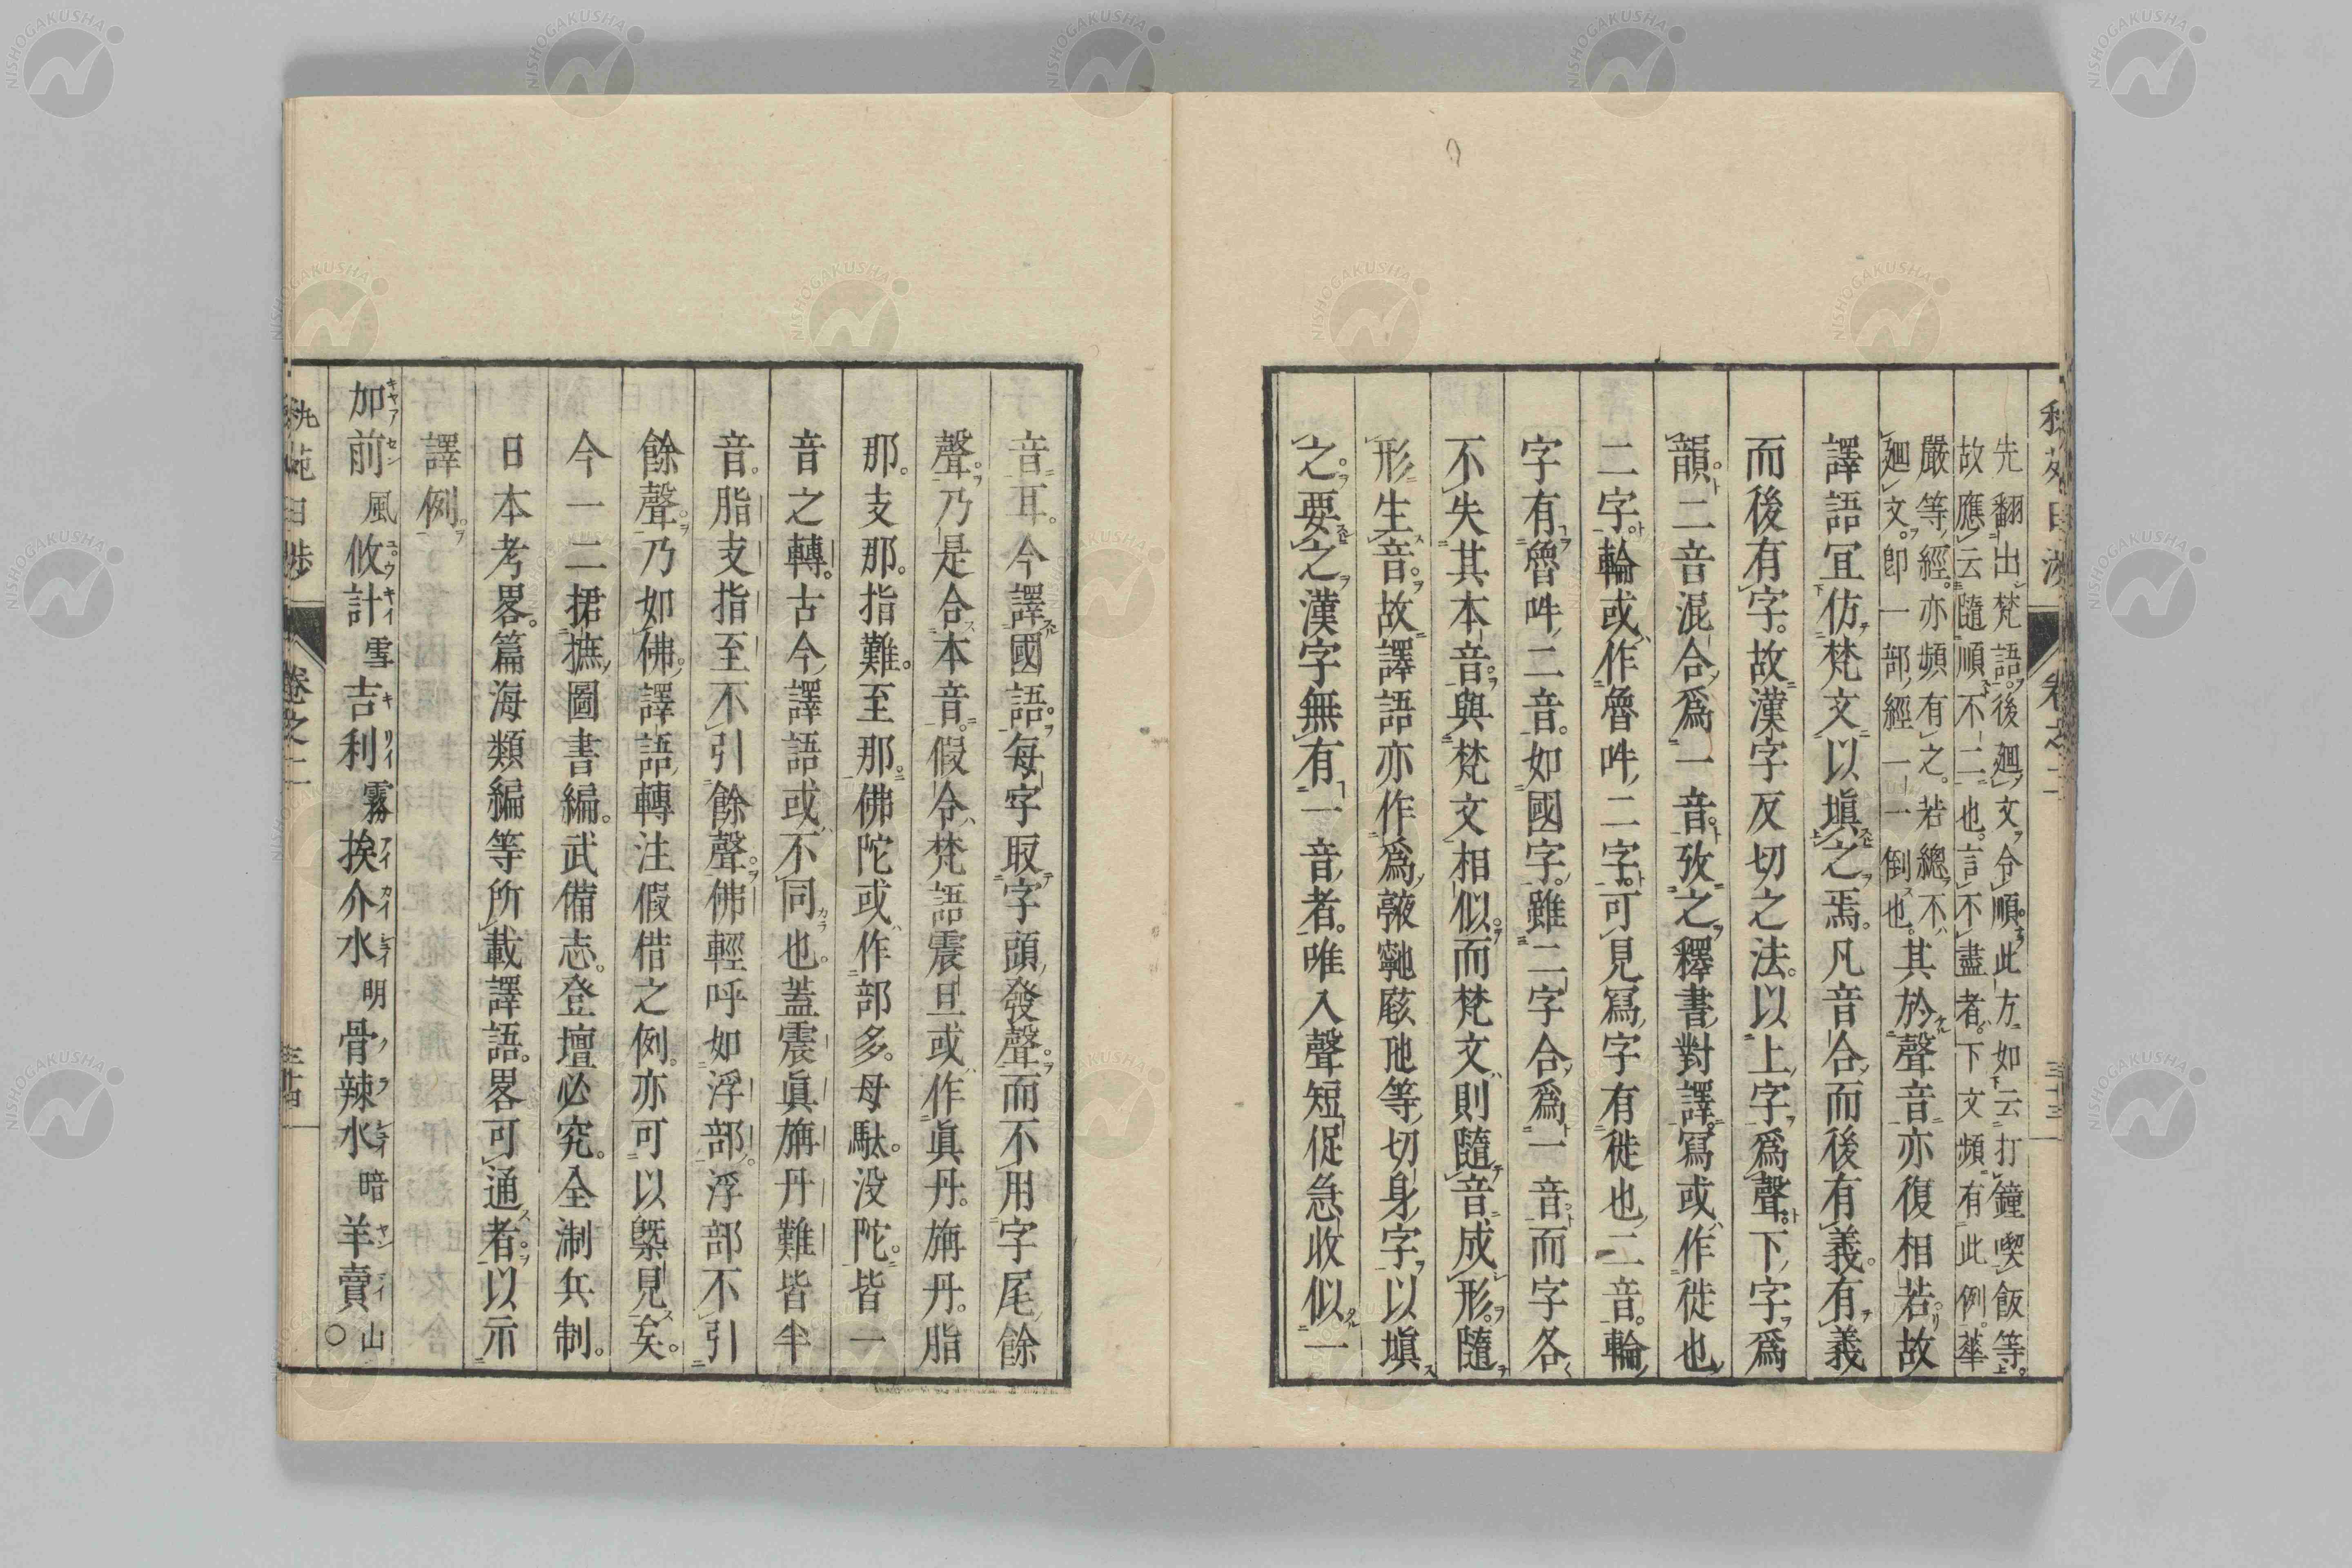 先翻出梵語。後廻文令順此方如云打鐘喫飯等。
故應云隨順不二也。言不盡者。下文頻有此例。華
嚴等經。亦頻有之。若總不
廻文。即一部經一一倒也。其於聲音亦復相若。故
譯語宜仿梵文以塡之焉。凡音合而後有義。有義
而後有字。故漢字反切之法。以上字爲聲。下字爲
韻。二音混合爲一音。攷之釋書對譯。寫或作徙也
二字。輪或作魯吽二字。可見寫字有徙也二音。輪
字有魯吽二音。如國字。雖二字合爲一音。而字各
不失其本音。與梵文相似。而梵文則隨音成形。隨
形生音。故譯語亦作爲等切身字。以塡
之。要之漢字無有一音者。唯入聲短促急收似一
音耳。今譯國語。每字取字頭發聲。而不用字尾餘
聲。乃是合本音。假令梵語震旦或作眞丹。旃丹。脂
那。支那。指難。至那。佛陀或作部多。母馱。没陀。皆一
音之轉。古今譯語或不同也。蓋震眞旃丹難皆半
音。脂支指至不引餘聲。佛輕呼如浮部。浮部不引
餘聲。乃如佛。譯語轉注假借之例。亦可以槩見矣。
今一二捃摭圖書編。武備志。登壇必究。全浙兵制。
日本考畧。篇海類編等所載譯語。畧可通者。以示
譯例。
加前風攸計雪吉利霧挨介水明骨辣水暗羊賣山○
卷之二